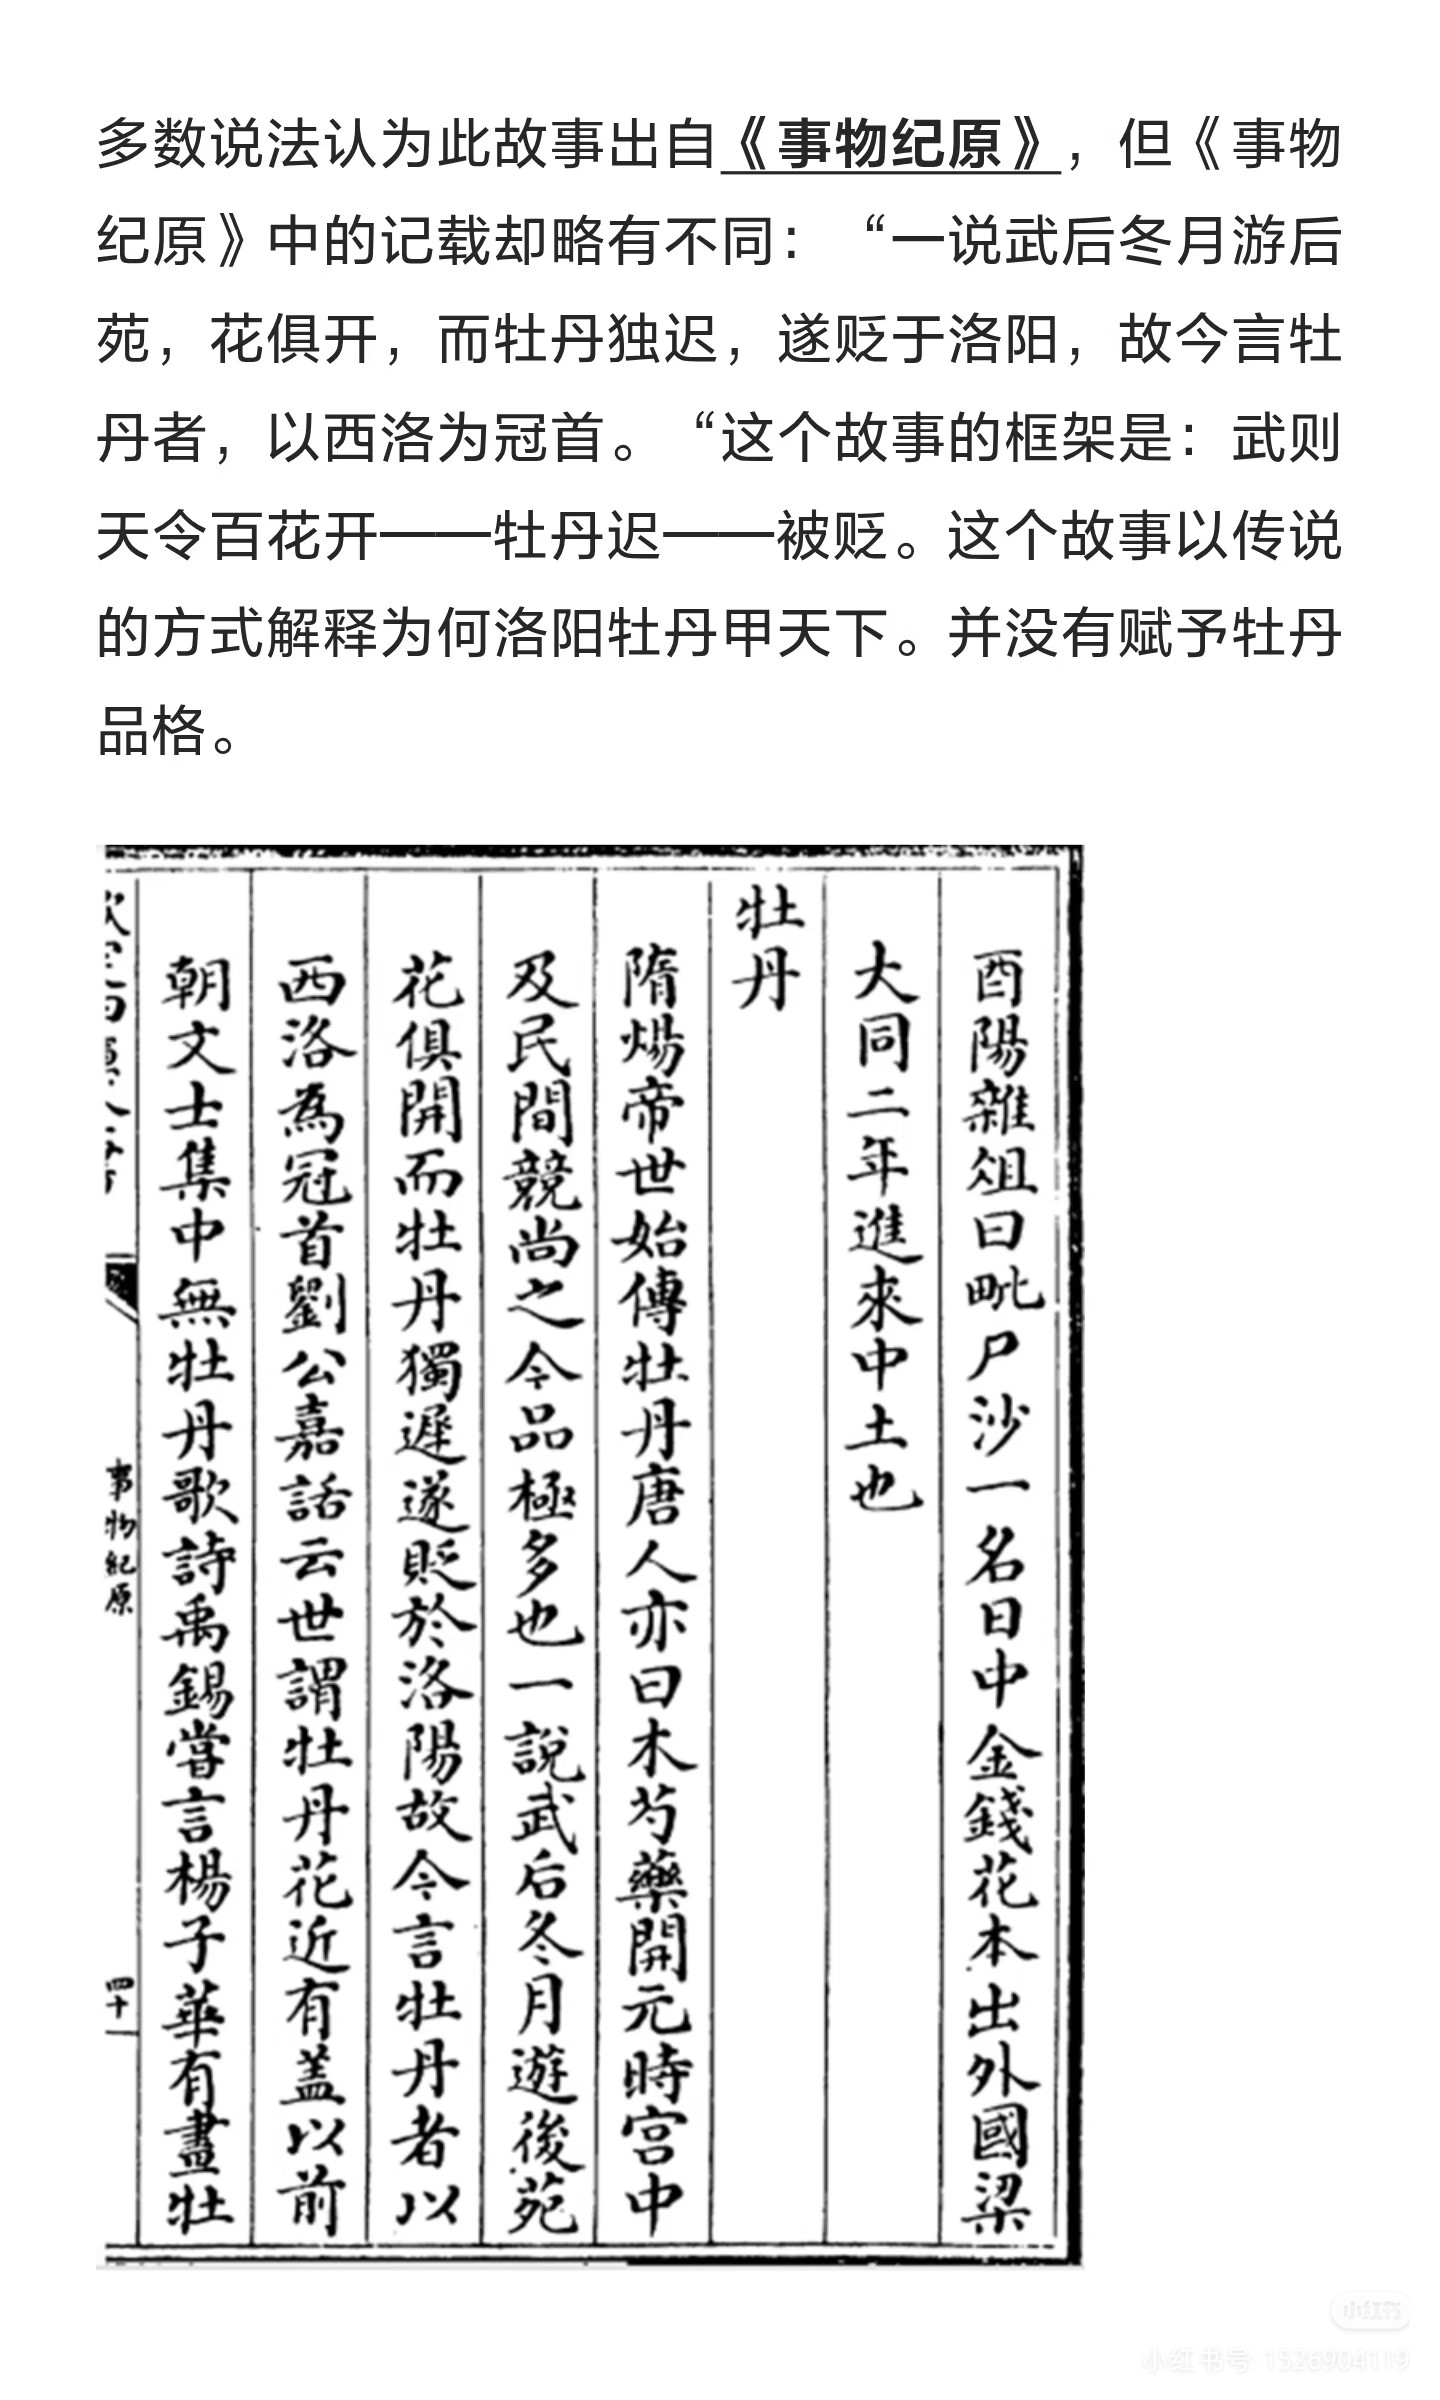 多数说法认为此故事出自《事物纪原》，但《事物
纪原》中的记载却略有不同：“一说武后冬月游后
苑，花俱开，而牡丹独迟，遂贬于洛阳，故今言牡
丹者，以西洛为冠首。“这个故事的框架是：武则
天令百花开——牡丹迟——被贬。这个故事以传说
的方式解释为何洛阳牡丹甲天下。并没有赋予牡丹
品格。
酉陽雜俎曰毗尸沙一名日中金錢花本出外國梁
大同二年進來中土也
牡丹
隋煬帝世始傳牡丹唐人亦曰木芍藥開元時宫中
及民間競尚之今品極多也一說武后冬月遊後苑
花俱開而牡丹獨遲遂貶於洛陽故今言牡丹者以
西洛為冠首劉公嘉話云世謂牡丹花近有盖以前
朝文士集中無牡丹歌詩禹錫嘗言楊子華有畫牡
事物紀原
四十一
小红书
小红书号 1526904119